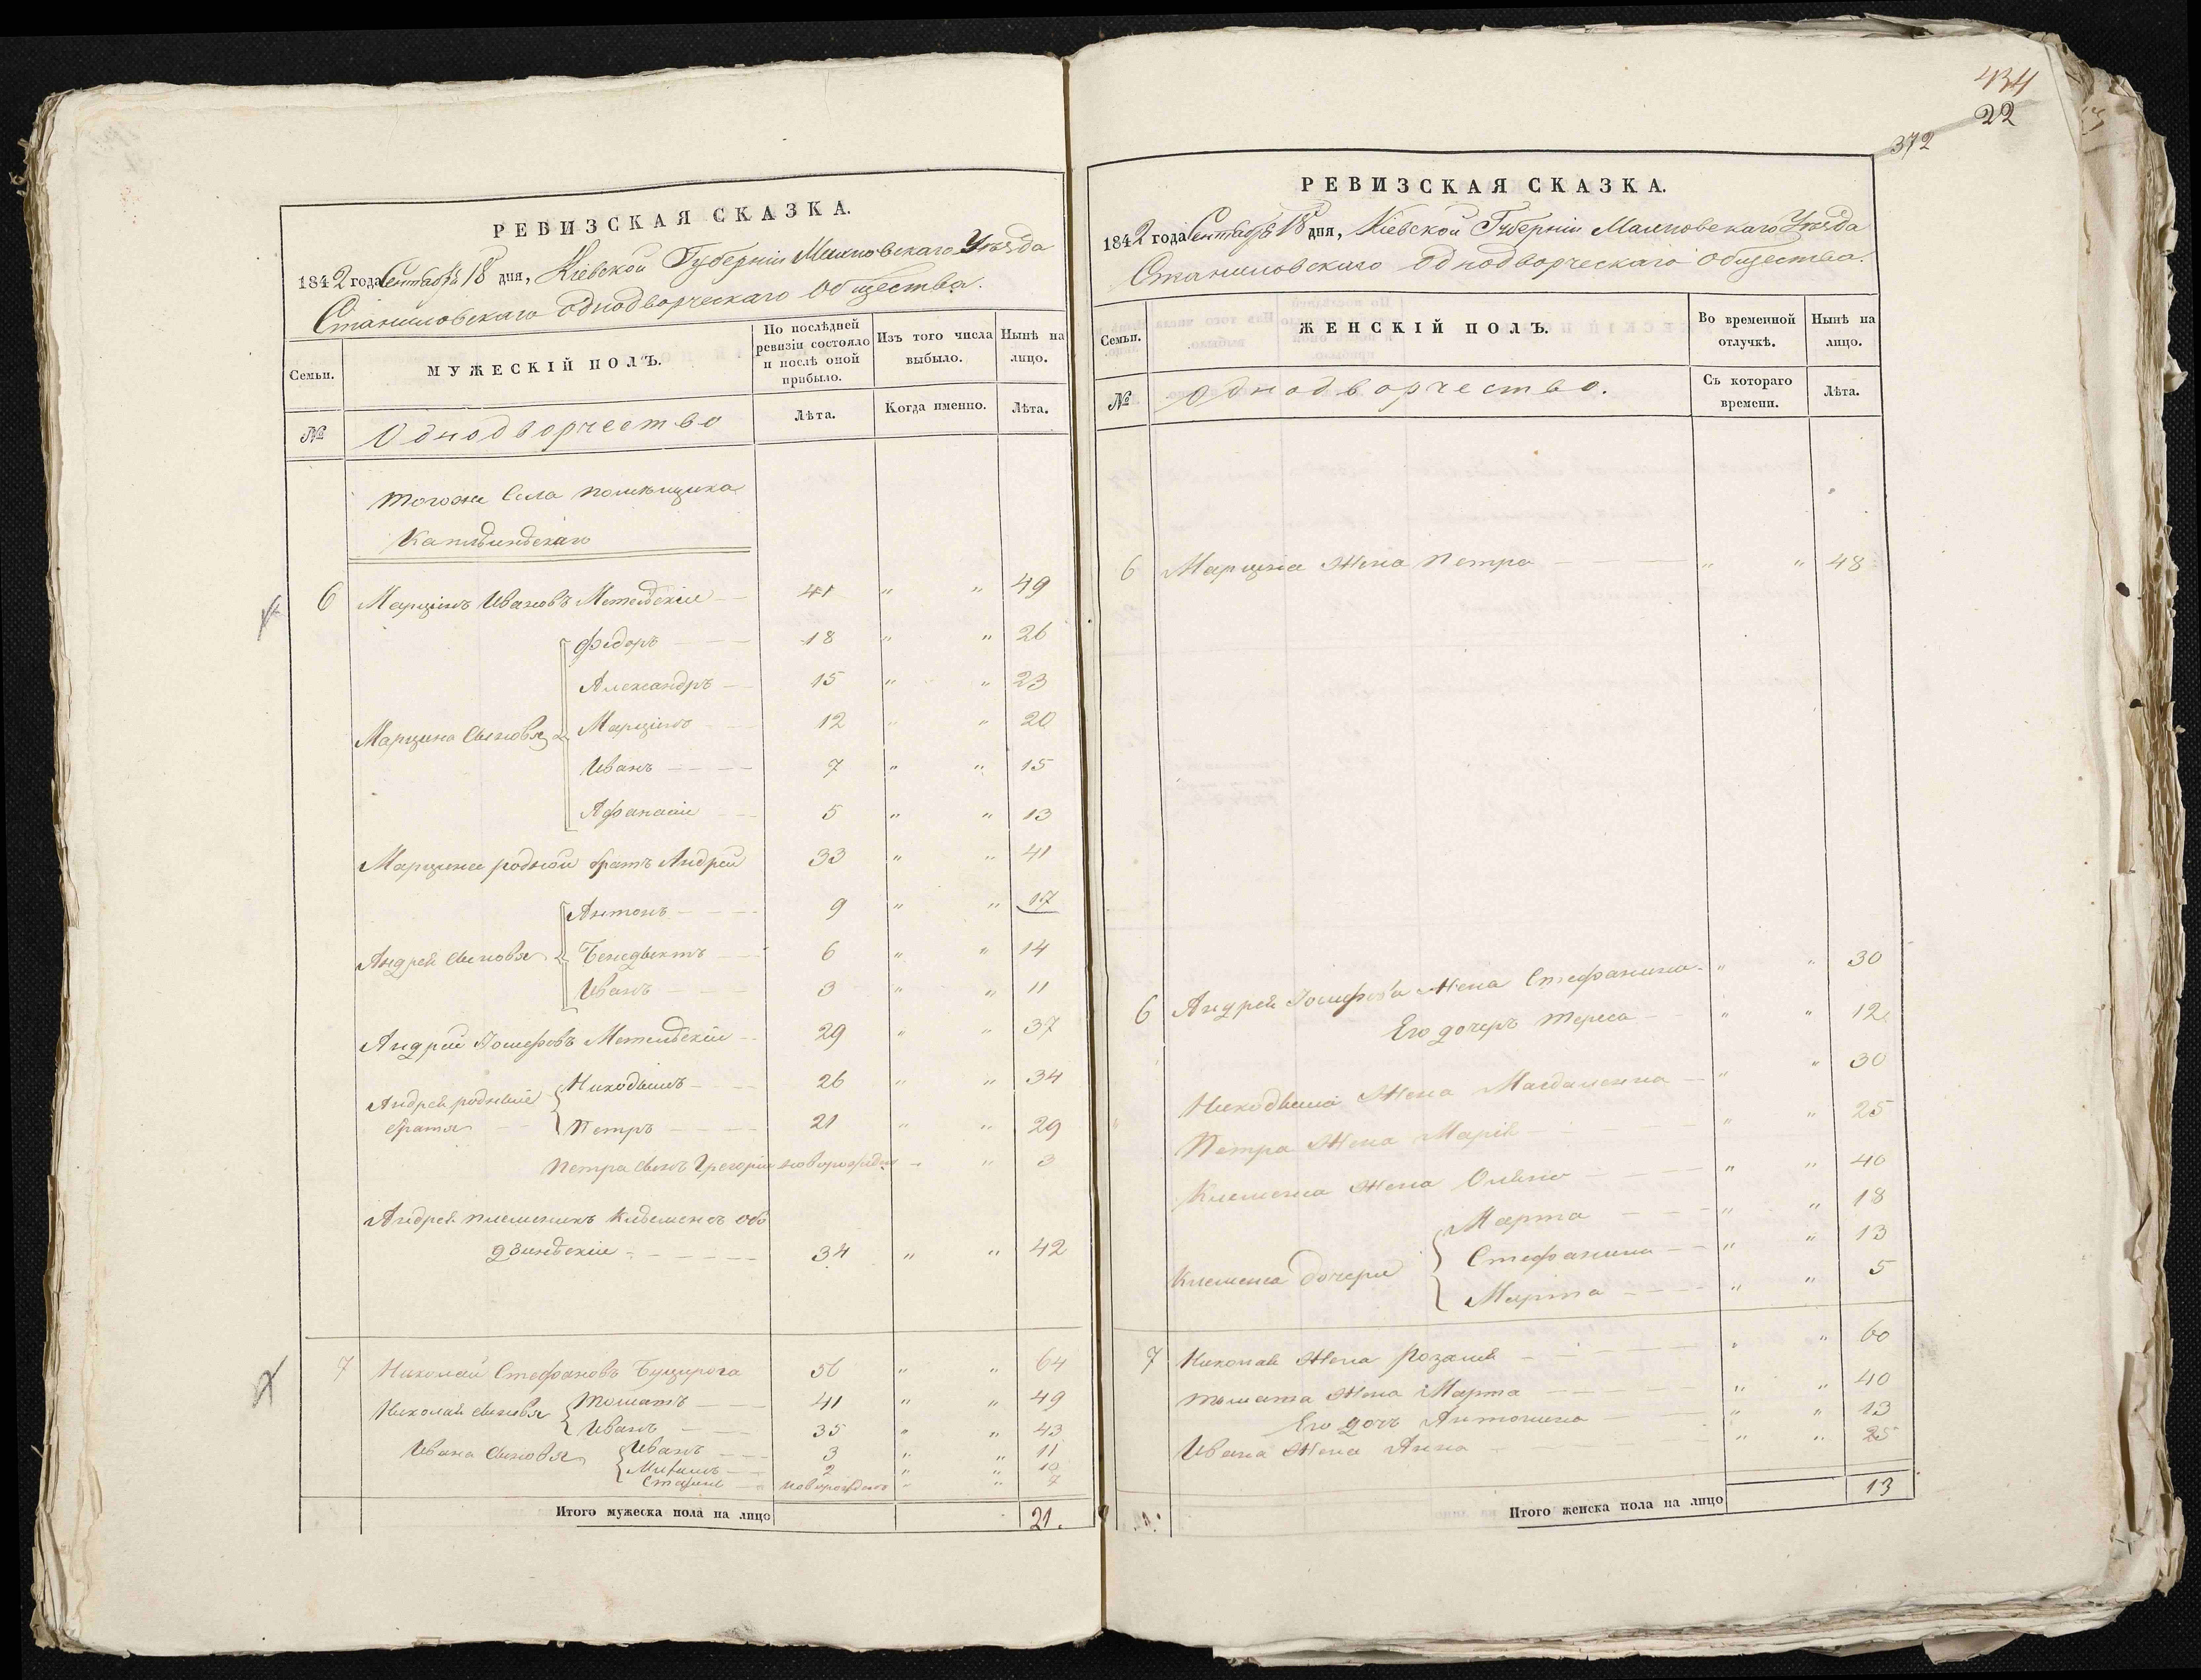 РЕВИЗСКАЯ СКАЗКА.
1842 года Сентября 18 дня, Кіевской Губерніи Махновскаго Уѣзда
Станиловскаго однодворческаго общества.
Семьи.
МУЖЕСКІЙ ПОЛЪ.
По послѣдней ревизіи состояло и послѣ оной прибыло.
Изъ того числа выбыло.
Нынѣ на лицо.
№
Однодворчество
Лѣта.
Когда именно.
Лѣта.
Тогоже Села помѣщика
6 Марцинъ Ивановъ 41 " " 49
Марцина Сыновья
Федоръ 18 " " 26
Александръ 15 " " 23
Марцинъ 12 " " 20
Иванъ 7 " " 15
Афанасіи 5 " " 13
Марцина родной братъ Андрей 33 " " 41
Андрея Сыновья
Антонъ 9 " " 17
Бенедыктъ 6 " " 14
Иванъ 3 " " 11
Андрей Іосифовъ 29 " " 37
Андрея родные братья
Никодымъ 26 " " 34
Петръ 21 " " 29
Петра Сынъ Грегорій новорожден " " 3
Андрея племеникъ Клеменсъ Обо
дзинскіи 34 " " 42
7 Николай Стефановъ 56 " " 64
Николая сыновья
Томашъ 41 " " 49
Иванъ 35 " " 43
Ивана Сыновья
Иванъ 3 " " 11
2 " " 10
новорожденъ " " 7
Итого мужеска пола на лицо 21.
434
22
372
РЕВИЗСКАЯ СКАЗКА.
1842 года Сентября 18 дня, Кіевской Губерніи Махновскаго Уѣзда
Станиловскаго однодворческаго общества.
Семьи.
ЖЕНСКІЙ ПОЛЪ.
Во временной отлучкѣ.
Нынѣ на лицо.
№
Однодворчество.
Съ котораго времени.
Лѣта.
6 Марцина Жена Петра " " 48
6 Андрея Іосифова Жена Стефанина " " 30
Его дочеръ Тереса " " 12
Никодыма Жена Магдаленна " " 30
Петра Жена Марія " " 25
Клеменса Жена " " 40
Клеменса дочери
Марта " " 18
Стефанина " " 13
Марта " " 5
7 Николая Жена Розалія " " 60
Томаша Жена Марта " " 40
Его дочъ Антонина " " 13
Ивана Жена Анна " " 25
Итого женска пола на лицо 13